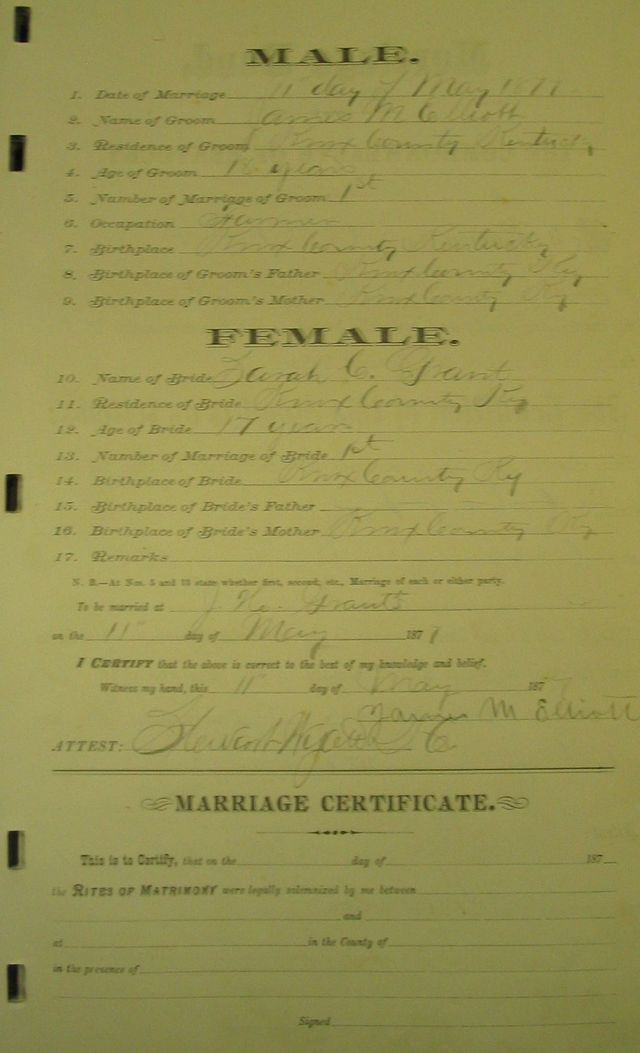 MALE.
1. Date of Marriage 11" day of May 1877
2. Name of Groom James M Elliott
3. Residence of Groom Knox County Kentucky
4. Age of Groom 18 years
5. Number of Marriage of Groom 1st
6. Occupation Farmer
7. Birthplace Knox County Kentucky
8. Birthplace of Groom's Father Knox County Ky
9. Birthplace of Groom's Mother Knox County Ky
FEMALE.
10. Name of Bride Sarah C. Grant
11. Residence of Bride Knox County Ky
12. Age of Bride 17 years
13. Number of Marriage of Bride 1st
14. Birthplace of Bride Knox County Ky
15. Birthplace of Bride's Father
16. Birthplace of Bride's Mother Knox County Ky
17. Remarks
N. B.—At Nos. 5 and 13 state whether first, second, etc., Marriage of each or either party.
To be married at J. Grants
on the 11" day of May 1877
I CERTIFY that the above is correct to the best of my knowledge and belief.
Witness my hand, this 11" day of May 187
James M Elliott
ATTEST:
MARRIAGE CERTIFICATE.
This is to Certify, that on the day of 187
the RITES OF MATRIMONY were legally solemnized by me between
and
at in the County of
in the presence of
Signed